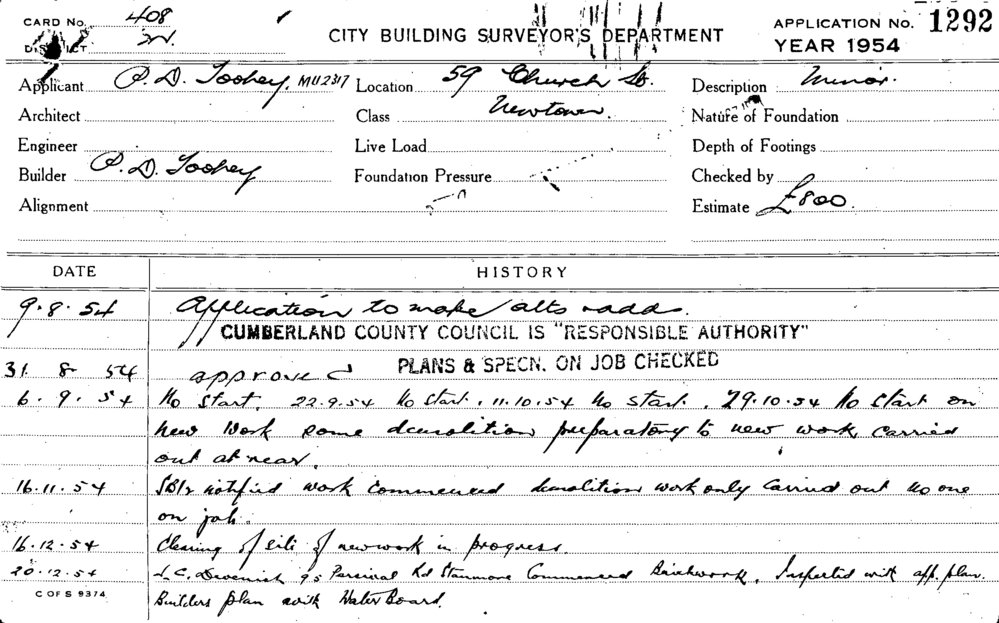 CARD No. 408
DISTRICT N.
CITY BUILDING SURVEYOR'S DEPARTMENT
APPLICATION No. 1292
YEAR 1954
Applicant P. D. Toohey. MU2317 Location 59 Church St. Description Minor.
Architect Class Newtown. Nature of Foundation
Engineer Live Load Depth of Footings
Builder P. D. Toohey Foundation Pressure Checked by
Alignment Estimate £800.
DATE HISTORY
9.8.54 Application to make alts & adds.
CUMBERLAND COUNTY COUNCIL IS "RESPONSIBLE AUTHORITY"
31 8 54 approved PLANS & SPECN. ON JOB CHECKED
6.9.54 No Start. 22.9.54 No start. 11.10.54 No start. 29.10.54 No start on
new work some demolition preparatory to new work carried
out at rear.
16.11.54 notified work commenced demolition work only carried out no one
on job.
16.12.54 Clearing of site of new work in progress.
20.12.54 L. C. Devenish 95 Percival Rd Stanmore Commenced Brickwork. Inspected with app. plan.
Builders plan with Water Board.
C OF S 9374